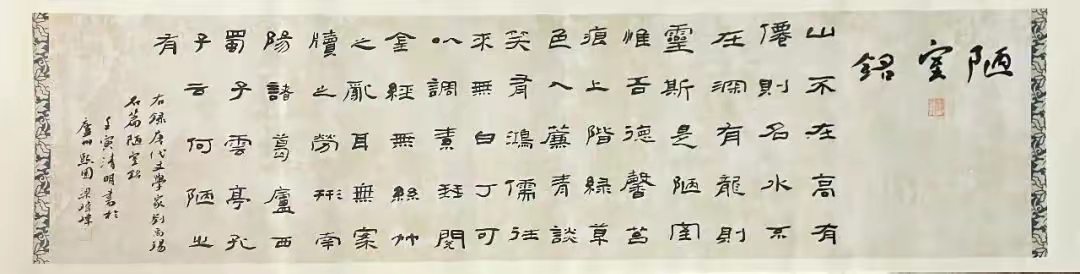 陋室銘
山不在高有
僊則名水不
在深有龍則
靈斯是陋室
惟吾德馨苔
痕上階綠草
色入簾青談
笑有鴻儒往
來無白丁可
以調素琴閱
金經無絲竹
之亂耳無案
牘之勞形南
陽諸葛廬西
蜀子雲亭孔
子云何陋之
有
右録唐代文學家劉禹錫
名篇陋室銘
壬寅清明書於
廬州 園 梁